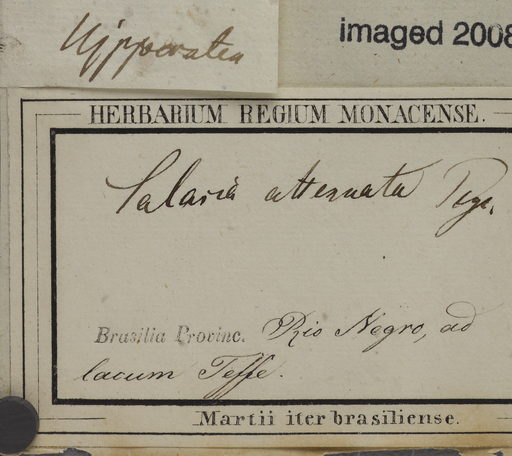 Hippocratea
imaged 2008
HERBARIUM REGIUM MONACENSE.
Salacia attenuata Peyr.
Brasilia Provinc. Rio Negro, ad
lacum Teffe.
Martii iter brasiliense.